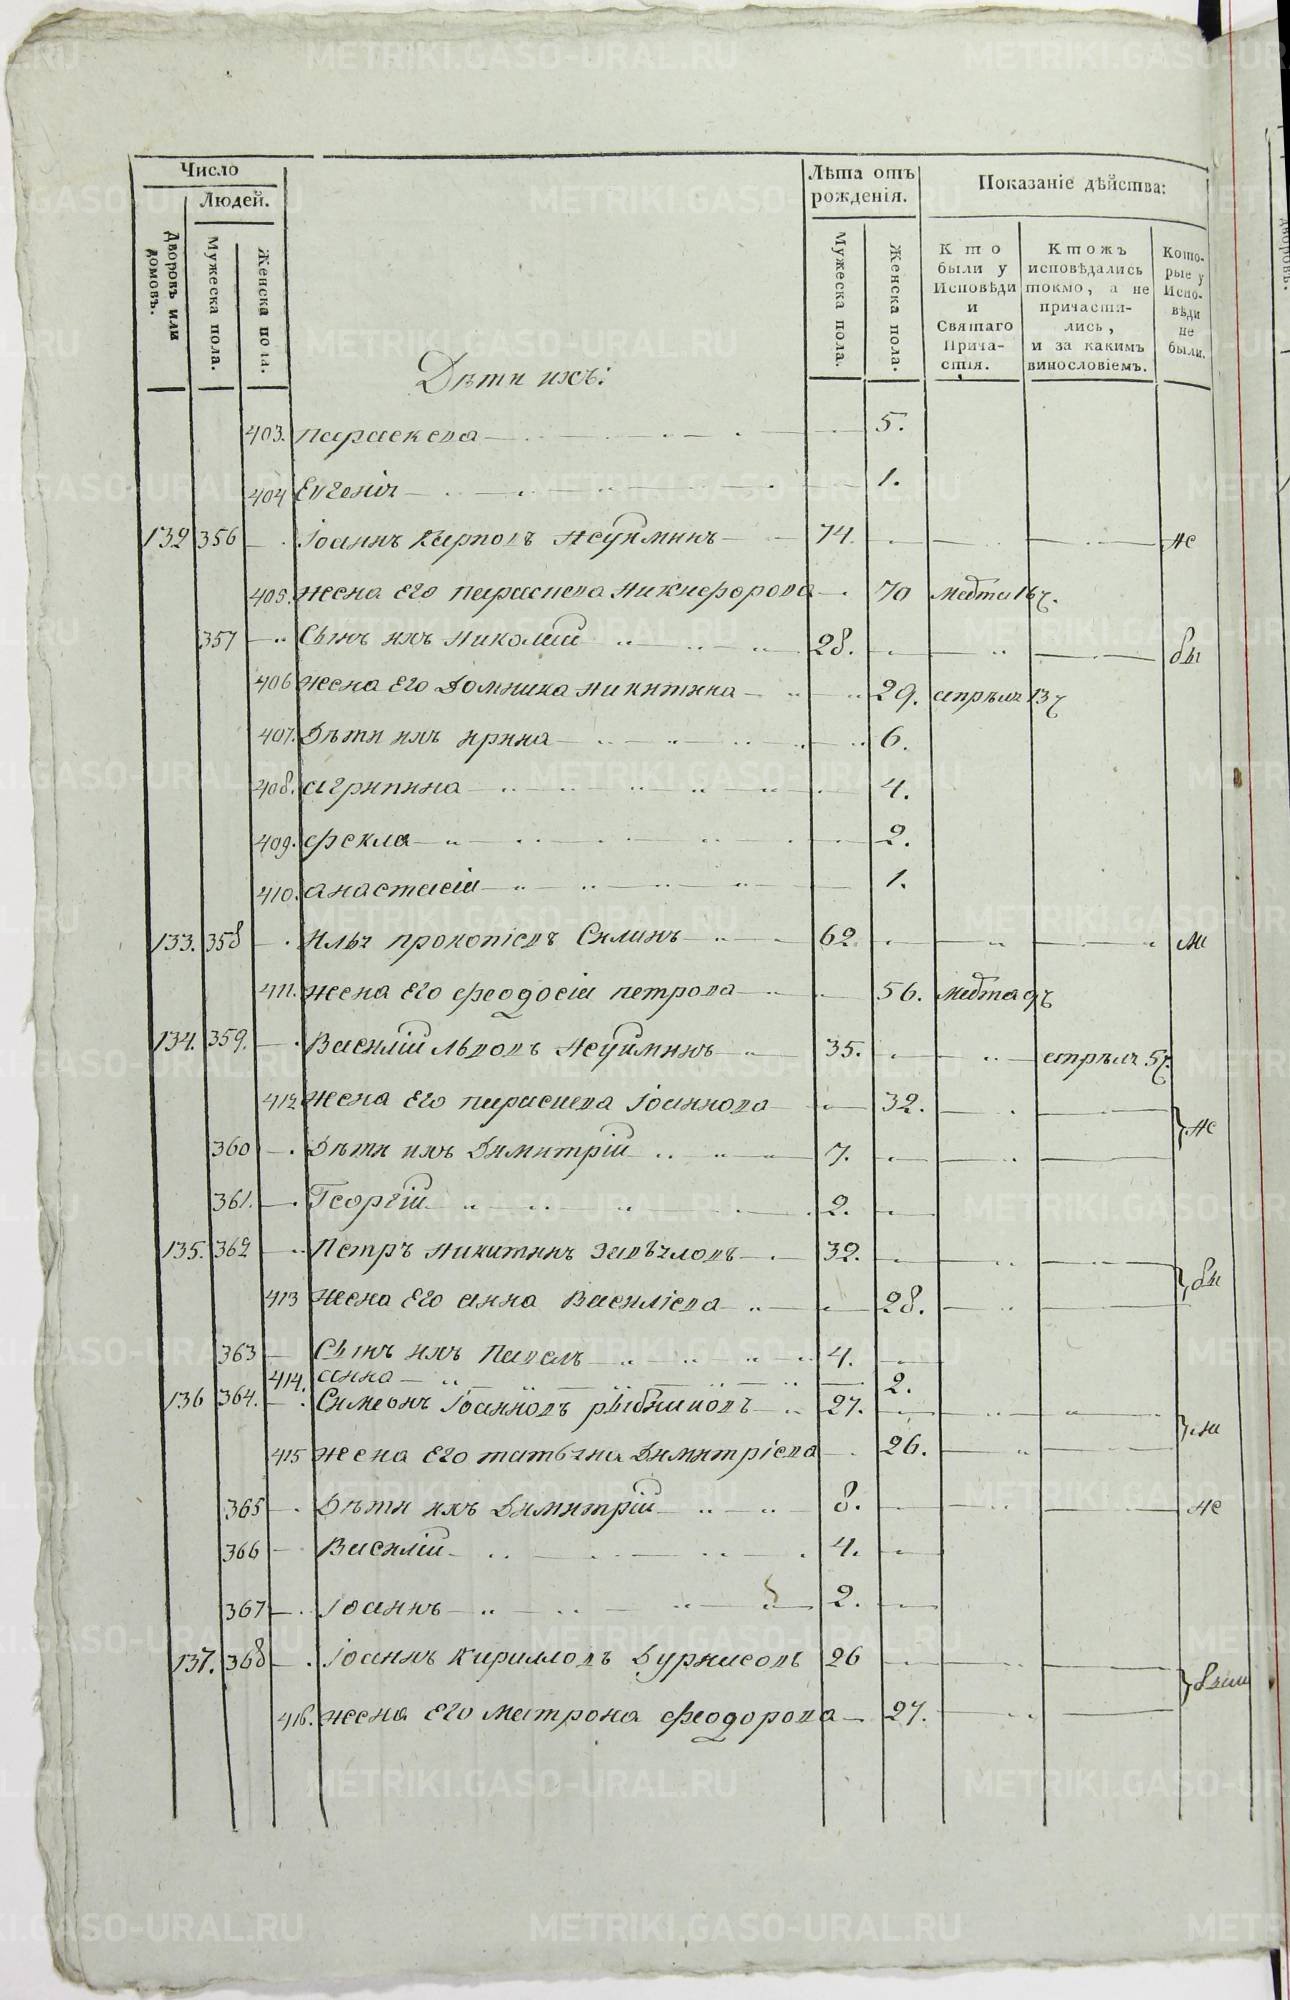 Число
Людей.
Дворовъ или домовъ.
Мужеска пола.
Женска пола.
Лѣта отъ рожденія.
Мужеска пола.
Женска пола.
Показаніе дѣйства:
Кто были у Исповѣди и Святаго Прича-стія.
Ктожъ исповѣдались токмо, а не причасти-лись, и за какимъ винословіемъ.
Кото-рые у Испо-вѣди не были.
Дѣти ихъ:
403. параскева 5.
404 Евгенія 1.
132 356 Іоаннъ Карповъ Неуйминъ 74. не
405. жена его параскева Никифорова 70 марта 16 ч.
357 Сынъ ихъ Николай 28. бы
406 жена его Домника Никитина 29. апрѣля 13 ч
407. Дѣти ихъ ирина 6.
408. агрипина 4.
409. фекла 2.
410. анастасія 1.
133. 358 Илья прокопіевъ Силинъ 62.
411. жена его феодосія петрова 56. марта 9 ч
134. 359. Василій Львовъ Неуйминъ 35. апрѣля 5 ч.
412 жена его параскева Іоаннова 32. не
360 Дѣти ихъ Димитрій 7.
361. Георгій 2.
135. 362 Петръ Никитинъ Завьяловъ 32.
413 жена его анна Василіева 28. бы
363 Сынъ ихъ Павелъ 4.
414. анна 2.
136 364. Симеонъ Іоанновъ 27.
415 жена его татьяна Димитріева 26.
365 Дѣти ихъ Димитрій 8. не
366 Василій 4.
367 Іоаннъ 2.
137. 368 Іоаннъ Кирилловъ 26
416. жена его матрона феодорова 27. были
METRIKI.GASO-URAL.RU